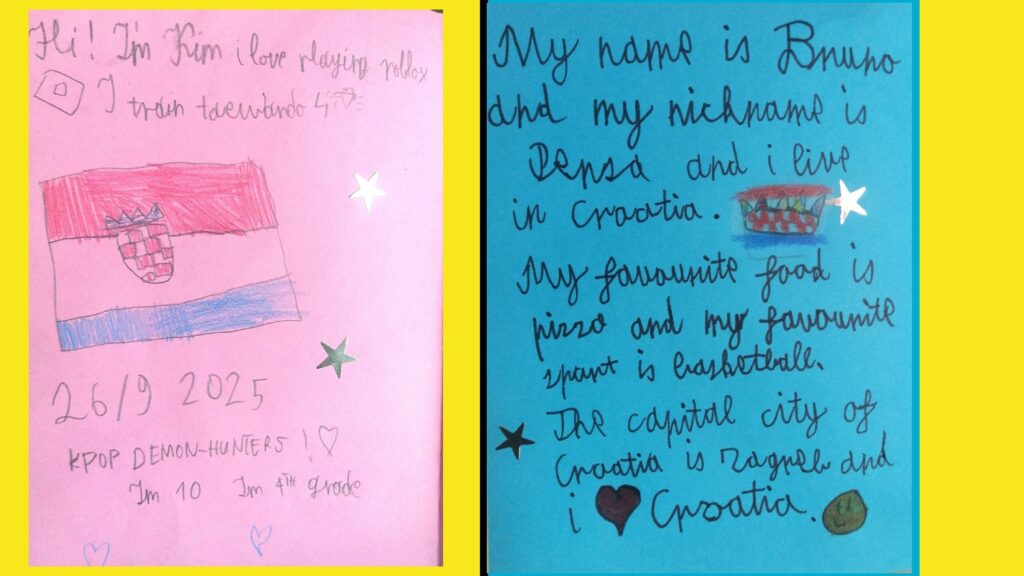 Hi! I'm Kim i love playing roblox
I train taewando
26/9 2025
KPOP DEMON-HUNTERS!
Im 10 Im 4TH grade
My name is Bruno
and my nickname is
and i live
in Croatia.
My favourite food is
pizza and my favourite
sport is basketball.
The capital city of
Croatia is Zagreb and
i Croatia.